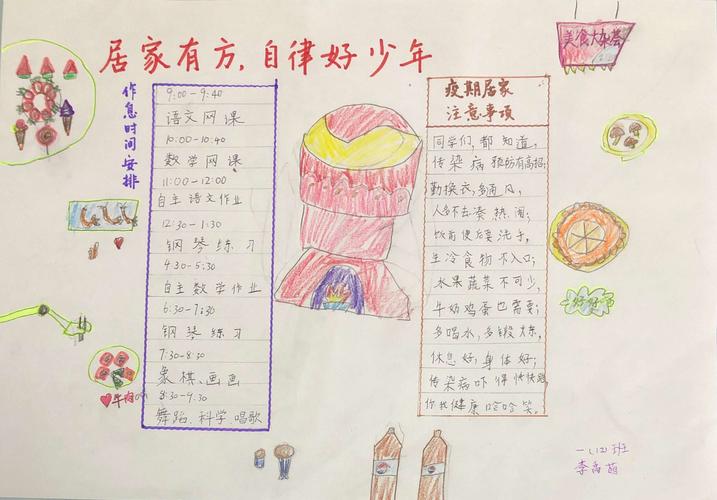 居家有方，自律好少年
美食大杂荟
作息时间安排
9:00-9:40
语文网课
10:00-10:40
数学网课
11:00-12:00
自主语文作业
12:30-1:30
钢琴练习
4:30-5:30
自主数学作业
6:30-7:30
钢琴练习
7:30-8:30
象棋、画画
8:30-9:30
舞蹈、科学 唱歌
疫期居家
注意事项
同学们，都知道，
传染病预防有高招；
勤换衣，多通风，
人多不去凑热闹；
饭前便后要洗手，
生冷食物不入口；
水果蔬菜不可少，
牛奶鸡蛋也需要；
多喝水，多锻炼，
休息好，身体好；
传染病吓得快快跑
你我健康哈哈笑。
牛肉
一（12）班